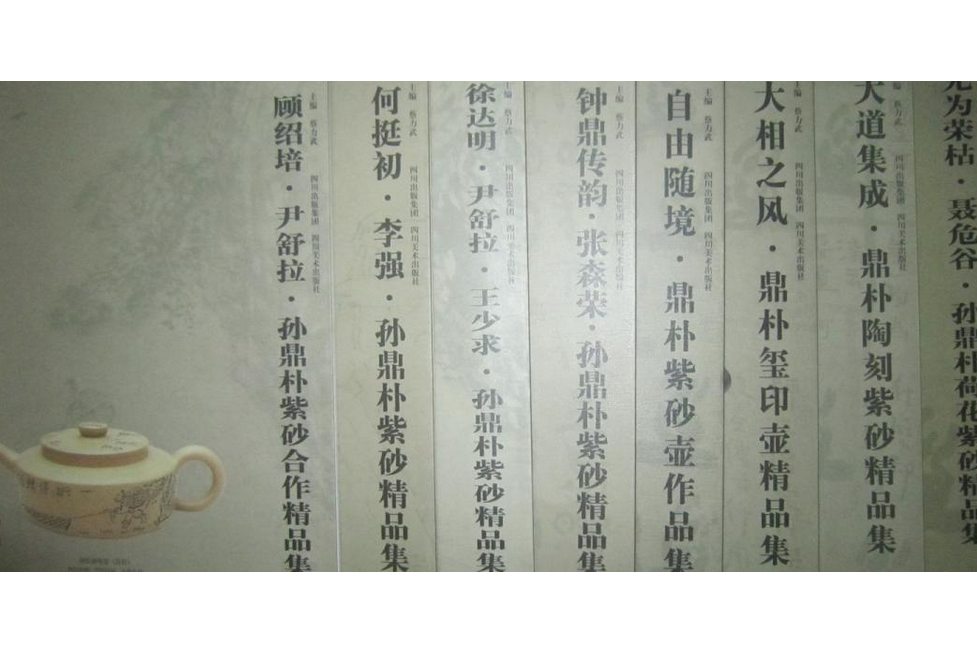 顾绍培·尹舒拉·孙鼎朴紫砂合作精品集
主编 蔡力武 四川出版集团 四川美术出版社
何挺初·李强·孙鼎朴紫砂精品集
主编 蔡力武 四川出版集团 四川美术出版社
徐达明·尹舒拉·王少求·孙鼎朴紫砂精品集
主编 蔡力武 四川出版集团 四川美术出版社
钟鼎传韵·张森荣·孙鼎朴紫砂精品集
主编 蔡力武 四川出版集团 四川美术出版社
自由随境·鼎朴紫砂壶作品集
主编 蔡力武 四川出版集团 四川美术出版社
大相之风·鼎朴玺印壶精品集
主编 蔡力武 四川出版集团 四川美术出版社
大道集成·鼎朴陶刻紫砂精品集
主编 蔡力武 四川出版集团 四川美术出版社
为荣枯·聂危谷·孙鼎朴荷花紫砂精品集